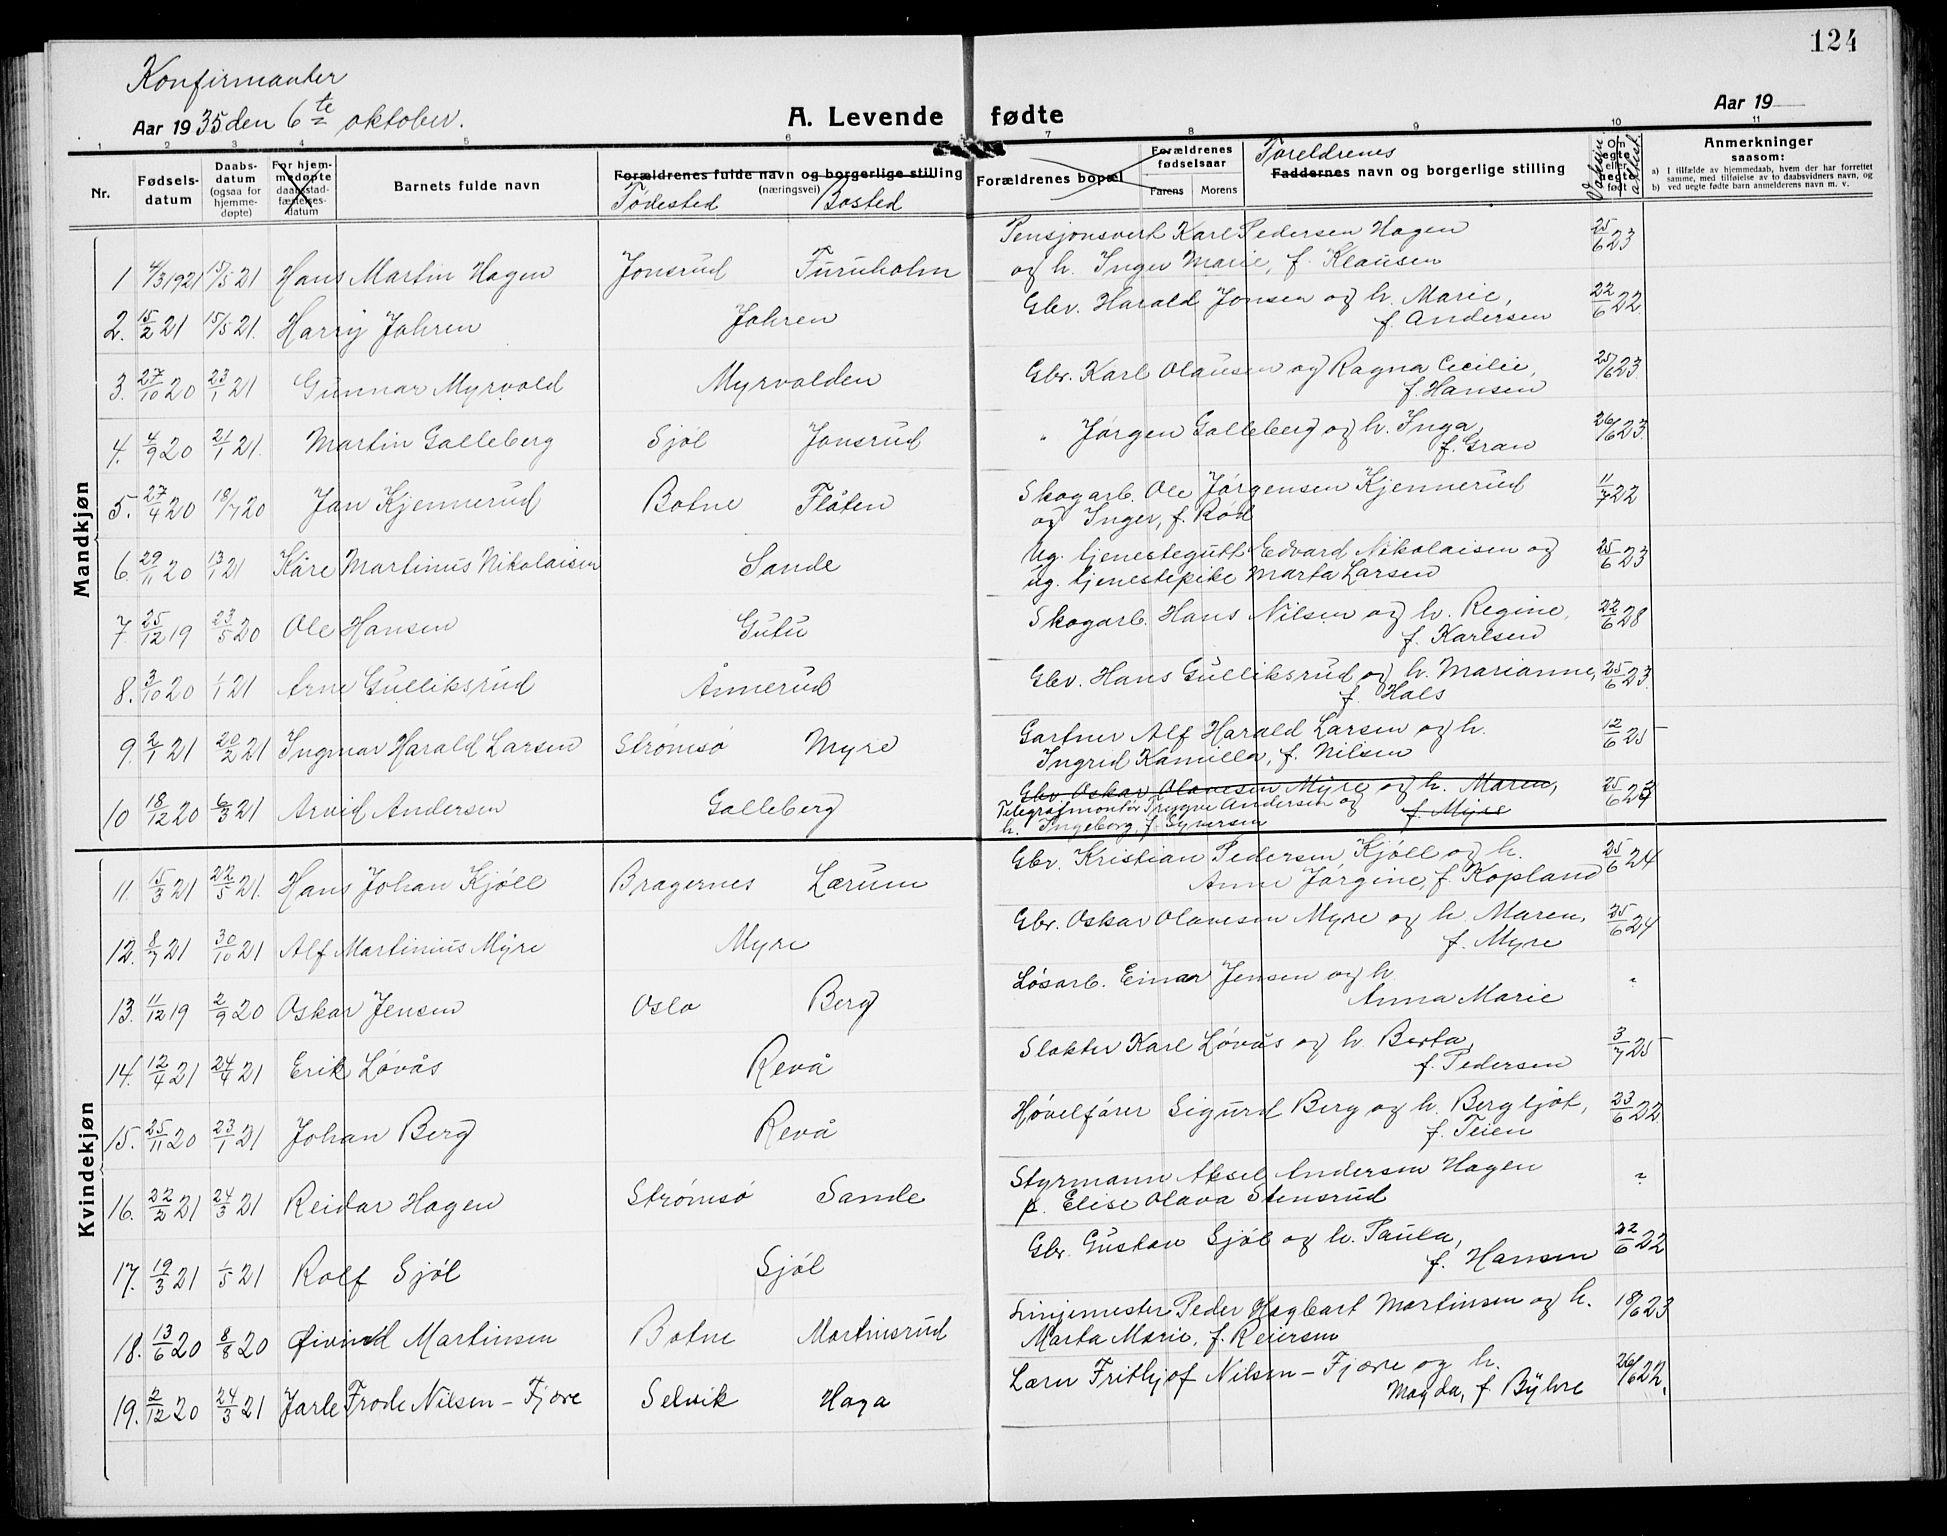 124
Konfirmanter
Aar 1935 den 6te oktober.
A. Levende fødte
Aar 19
1 2 3 4 5 6 7 8 9 10 11
Nr. Fødsels-datum Daabs-datum (ogsaa for hjemme-døpte) For hjem-medøpte daabsstad-fæstelses-datum Barnets fulde navn Forældrenes fulde navn og borgerlige stilling (næringsvei) Forældrenes bopæl Forældrenes fødselsaar Farens Morens Faddernes navn og borgerlige stilling Om egte eller uegte født Anmerkninger saasom:
a) I tilfælde av hjemmedaab, hvem der har forrettet samme, med tilføielse av to daabsvidners navn, og
b) ved uegte fødte barn anmelderens navn m. v.
Fødested Bosted Foreldrenes
Mandkjøn
1 4/3 1921 15/5 21 Hans Martin Hagen Jonsrud Furuholm Pensjonsvert Karl Pedersen Hagen 25/6 23
og h. Inger Marie, f. Klausen
2. 15/2 21 15/5 21. Harry Jahren Jahren Gbr. Harald Jonsen og h. Marie, 22/6 22.
f. Andersen
3. 27/10 20 23/1 21 Gunnar Myrvold Myrvolden Gbr. Karl Olausen og Ragna Cecilie, 25/6 23.
f. Hansen
4. 4/9 20 21/1 21. Martin Galleberg Sjøl Jonsrud " Jørgen Galleberg og h. Inga, 26/6 23.
f. Gran
5. 27/4 20 18/7 20 Jan Kjennerud Botne Flåten Skogarb. Ole Jørgensen Kjennerud 11/7 22
og Inger, f. Rød
6. 29/11 20 13/1 21 Kåre Martinus Nikolaisen Sande Ug. tjenestegutt Edvard Nikolaisen og 25/6 23
ug. tjenestepike Marta Larsen
7 25/12 19 23/5 20 Ole Hansen Gutu Skogarb. Hans Nilsen og h. Regine, 22/6 28
f. Karlsen
8. 3/10 20 1/1 21 Arne Gulliksrud Ånnerud Gbr. Hans Gulliksrud og h. Marianne, 25/6 23.
f. Hals
9. 2/1 21 20/2 21 Ingmar Harald Larsen Strømsø Myre Gartner Alf Harald Larsen og h. 12/6 25
Ingrid Kamilla, f. Nilsen
10 18/12 20 6/3 21 Arvid Andersen Galleberg Gbr. Oskar Olavesen Myre og h. Maren, 25/6 23
Telegrafmontør Trygve Andersen og f. Myre
h. Ingeborg, f. Syversen
Kvindekjøn
11. 15/3 21 22/5 21. Hans Johan Kjøll Bragernes Lærum Gbr. Kristian Pedersen Kjøll og h. 25/6 24
Anne Jørgine, f. Kopland
12. 8/7 21 30/10 21 Alf Martinius Myre Myre Gbr. Oskar Olavesen Myre og h. Maren, 25/6 24
f. Myre
13. 11/12 19 2/9 20 Oskar Jensen Oslo Berg Løsarb. Einar Jensen og h. "
Anna Marie
14. 12/4 21 24/4 21 Erik Løvås Revå Slakter Karl Løvås og h. Berta, 3/7 25
f. Pedersen
15. 25/11 20 23/1 21 Johan Berg Revå Høvelfører Sigurd Berg og h. Bergljot, 23/6 22.
f. Teien
16. 22/2 21 24/3 21 Reidar Hagen Strømsø Sande Styrmann Aksel Andersen Hagen "
p. Elise Olava Stensrud
17. 19/3 21 1/5 21 Rolf Sjøl Sjøl Gbr. Gustav Sjøl og h. Paula, 22/6 22
f. Hansen
18. 13/6 20 8/8 20 Øivind Martinsen Botne Martinsrud Linjemester Peder Hagbart Martinsen og h. 18/6 23
Marta Marie, f. Reiersen
19. 2/12 20 24/3 21 Jarle Frode Nilsen - Fjære Selvik Haga Lærer Frithjof Nilsen - Fjære og h. 26/6 22.
Magda, f. Byhre